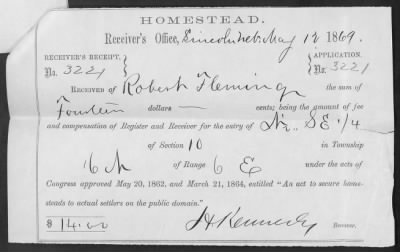 HOMESTEAD.
Receiver's Office, Lincoln Neb. May 12 1869.
RECEIVER'S RECEIPT, APPLICATION,
No. 3221 No. 3221
RECEIVED OF Robert Fleming the sum of
Fourteen dollars — cents; being the amount of fee
and compensation of Register and Receiver for the entry of SE 1/4
of Section 10 in Township
6 N of Range 6 E under the acts of
Congress approved May 20, 1862, and March 21, 1864, entitled "An act to secure home-
steads to actual settlers on the public domain."
$ 14.00 Kennedy Receiver.